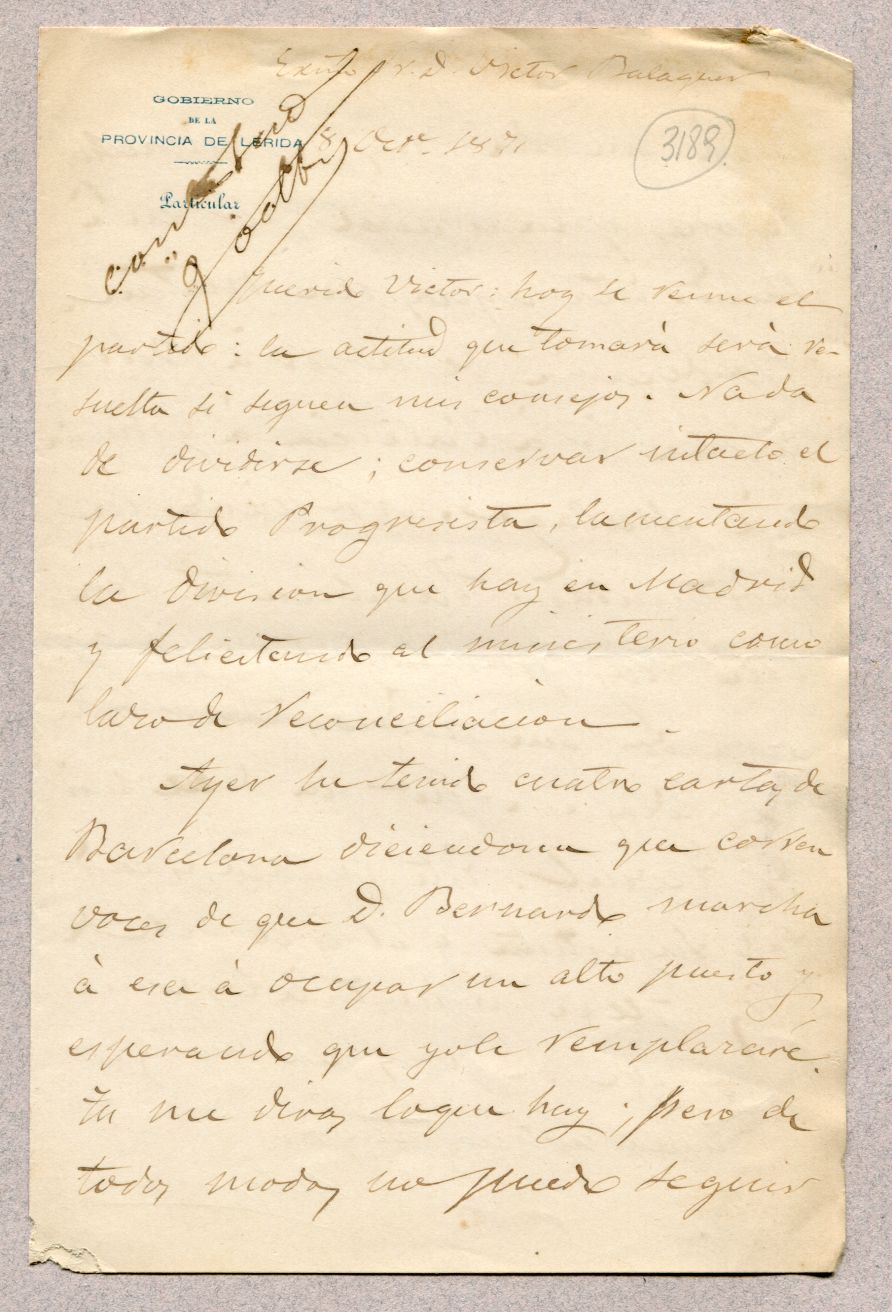 Exmo Sr. D. Victor Balaguer
GOBIERNO
DE LA
PROVINCIA DE LERIDA
Particular
8 Octe. 1871
3189
contestad
9 octbre
Querido Victor: hoy se reune el
partido: la actitud que tomará será re-
suelta si siguen mis consejos. Nada
de dividirse; conservar intacto el
partido Progresista, lamentando
la division que hay en Madrid
y felicitando al ministerio como
lazo de reconciliacion.
Ayer he tenido cuatro cartas de
Barcelona diciendome que corren
voces de que D. Bernardo marcha
à esa à ocupar un alto puesto y
esperando que yo le remplazaré.
Tu me diras lo que hay; pero de
todos modos no puedo seguir